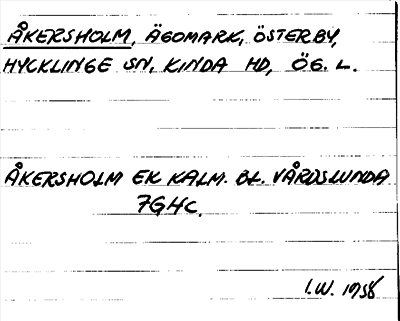 ÅKERSHOLM, ÄGOMARK, ÖSTERBY,
HYCKLINGE SN, KINDA HD, ÖG. L.
ÅKERSHOLM EK KALM. BL. VÅRDSLUNDA
7GHC.
I.W. 1958